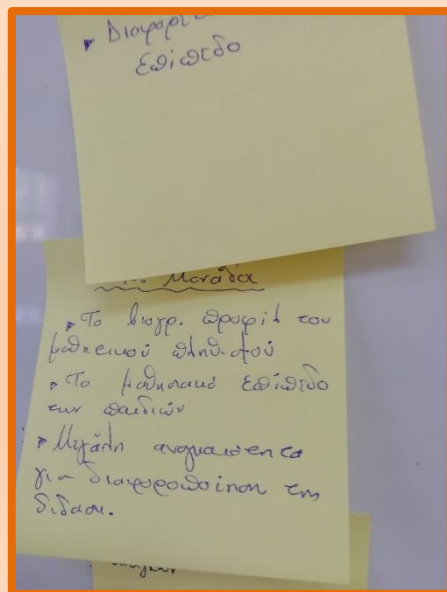 ▸ Διαφορε
επίπεδο
Μονάδα
▸ Το βιογρ. προφίλ του
μαθητικού πληθ-σμού
▸ Το μαθησιακό επίπεδο
των παιδιών
▸ Μεγάλη αναγκαιότητα
για διαφοροποίηση της
διδασκ.